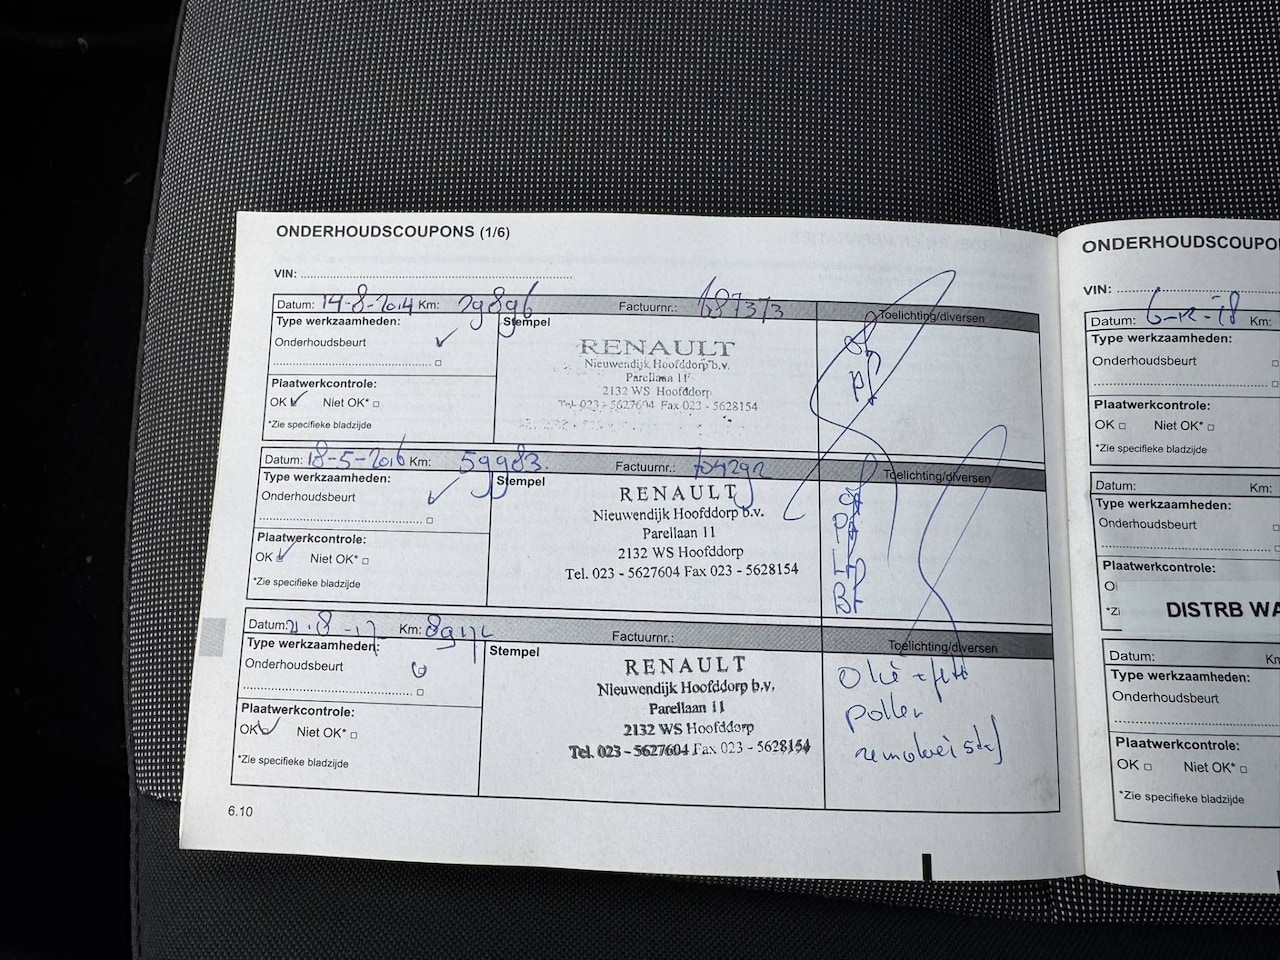 ONDERHOUDSCOUPONS (1/6)
VIN:
Datum: 14-8-2014 Km: 29896 Factuurnr.: 687373 Toelichting/diversen
Type werkzaamheden: Stempel
Onderhoudsbeurt
RENAULT
Nieuwendijk Hoofddorp b.v.
Parellaan 11
2132 WS Hoofddorp
Tel. 023 - 5627604 Fax 023 - 5628154
of
Pf
Plaatwerkcontrole:
OK Niet OK*
*Zie specifieke bladzijde
Datum: 18-5-2016 Km: 59983. Factuurnr.: 704292 Toelichting/diversen
Type werkzaamheden: Stempel
Onderhoudsbeurt
RENAULT
Nieuwendijk Hoofddorp b.v.
Parellaan 11
2132 WS Hoofddorp
Tel. 023 - 5627604 Fax 023 - 5628154
of
Pf
Lf
Bf
Plaatwerkcontrole:
OK Niet OK*
*Zie specifieke bladzijde
Datum: 21-8-17 Km: Factuurnr.: Toelichting/diversen
Type werkzaamheden: Stempel
Onderhoudsbeurt
RENAULT
Nieuwendijk Hoofddorp b.v.
Parellaan 11
2132 WS Hoofddorp
Tel. 023 - 5627604 Fax 023 - 5628154
Olie + filt
pollen
remvloeistof
Plaatwerkcontrole:
OK Niet OK*
*Zie specifieke bladzijde
6.10
ONDERHOUDSCOUPO
VIN:
Datum: 6-12-18 Km:
Type werkzaamheden:
Onderhoudsbeurt
Plaatwerkcontrole:
OK Niet OK*
*Zie specifieke bladzijde
Datum: Km:
Type werkzaamheden:
Onderhoudsbeurt
Plaatwerkcontrole:
O
*Zi
DISTRB WA
Datum: Km
Type werkzaamheden:
Onderhoudsbeurt
Plaatwerkcontrole:
OK Niet OK*
*Zie specifieke bladzijde